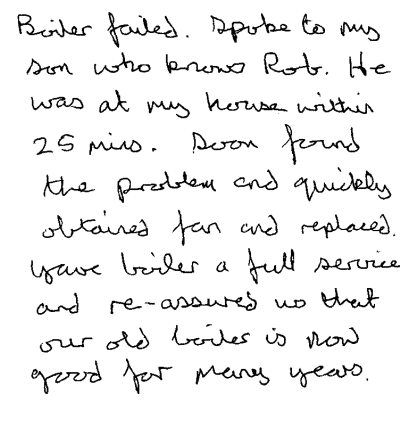 Boiler failed. Spoke to my
son who knows Rob. He
was at my house within
25 mins. Soon found
the problem and quickly
obtained fan and replaced.
Gave boiler a full service
and re-assured us that
our old boiler is now
good for many years.